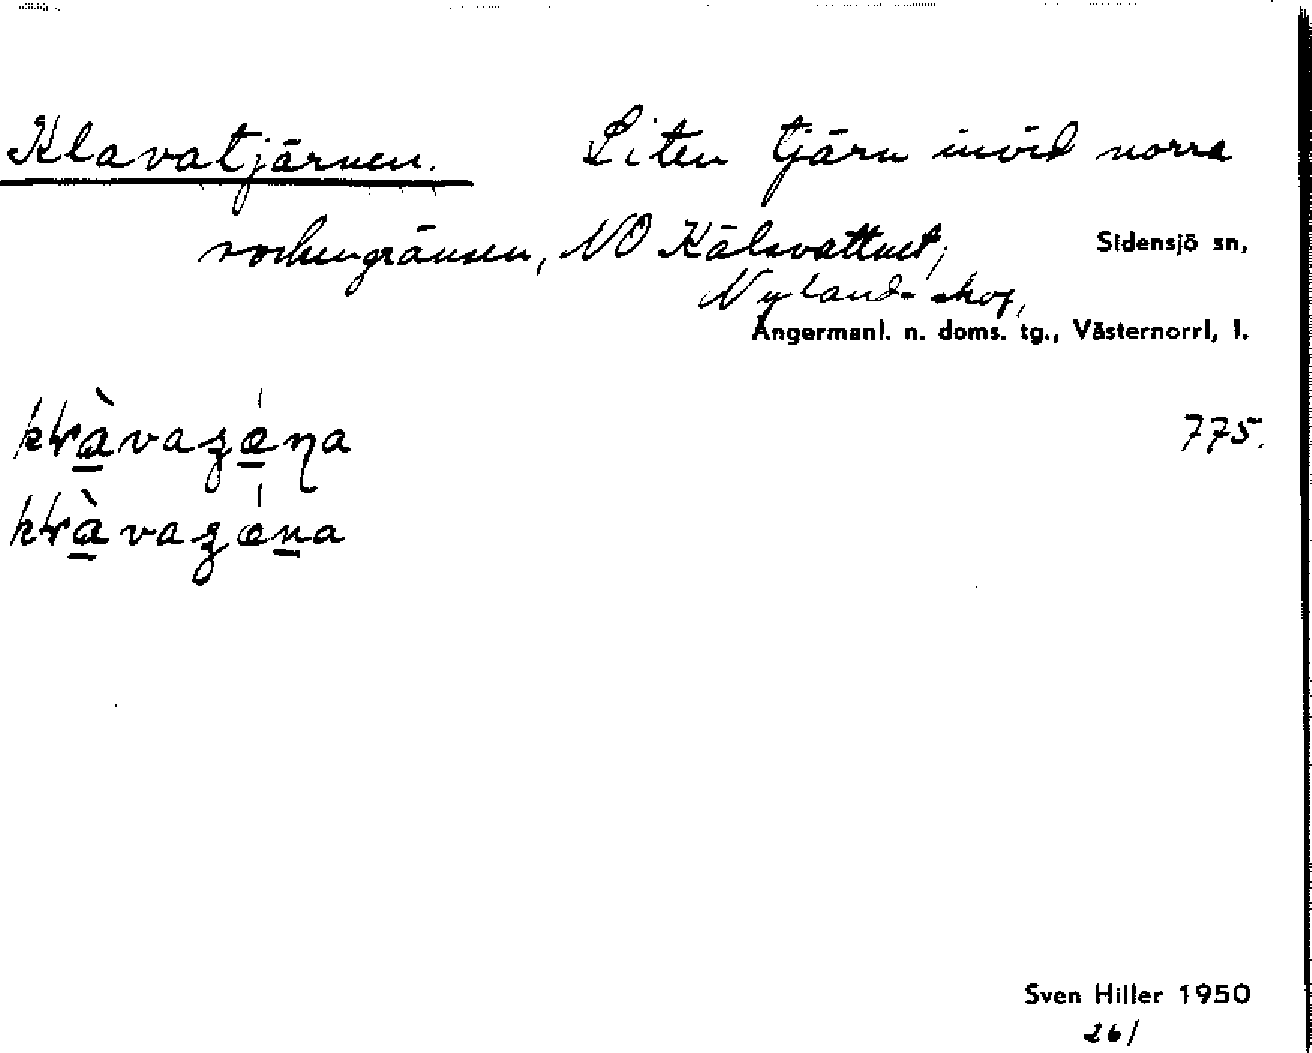 Klavatjärnen. Liten tjärn invid norra
sockengränsen, NO Kälsvattnet,
Sidensjö sn,
Nylands skog,
Ångermanl. n. doms. tg., Västernorrl, l.
775.
Sven Hiller 1950
261